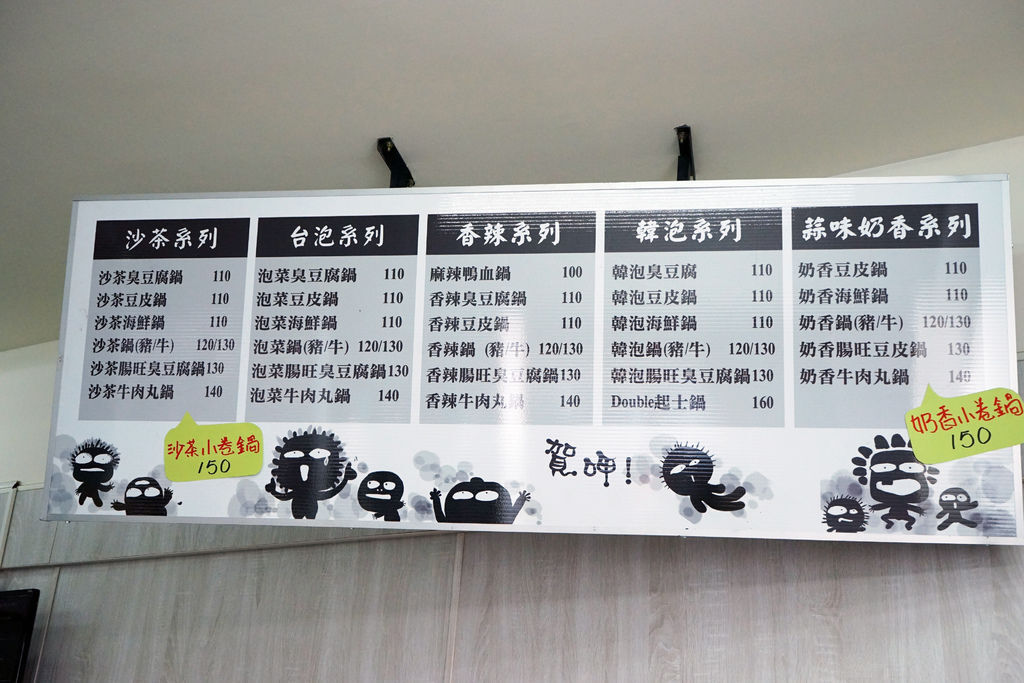 沙茶系列
沙茶臭豆腐鍋 110
沙茶豆皮鍋 110
沙茶海鮮鍋 110
沙茶鍋(豬/牛) 120/130
沙茶腸旺臭豆腐鍋130
沙茶牛肉丸鍋 140
沙茶小卷鍋
150
台泡系列
泡菜臭豆腐鍋 110
泡菜豆皮鍋 110
泡菜海鮮鍋 110
泡菜鍋(豬/牛) 120/130
泡菜腸旺臭豆腐鍋130
泡菜牛肉丸鍋 140
香辣系列
麻辣鴨血鍋 100
香辣臭豆腐鍋 110
香辣豆皮鍋 110
香辣鍋 (豬/牛) 120/130
香辣腸旺臭豆腐鍋130
香辣牛肉丸鍋 140
韓泡系列
韓泡臭豆腐 110
韓泡豆皮鍋 110
韓泡海鮮鍋 110
韓泡鍋(豬/牛) 120/130
韓泡腸旺臭豆腐鍋130
Double起士鍋 160
蒜味奶香系列
奶香豆皮鍋 110
奶香海鮮鍋 110
奶香鍋(豬/牛) 120/130
奶香腸旺豆皮鍋 130
奶香牛肉丸鍋 140
奶香小卷鍋
150
賀呷!